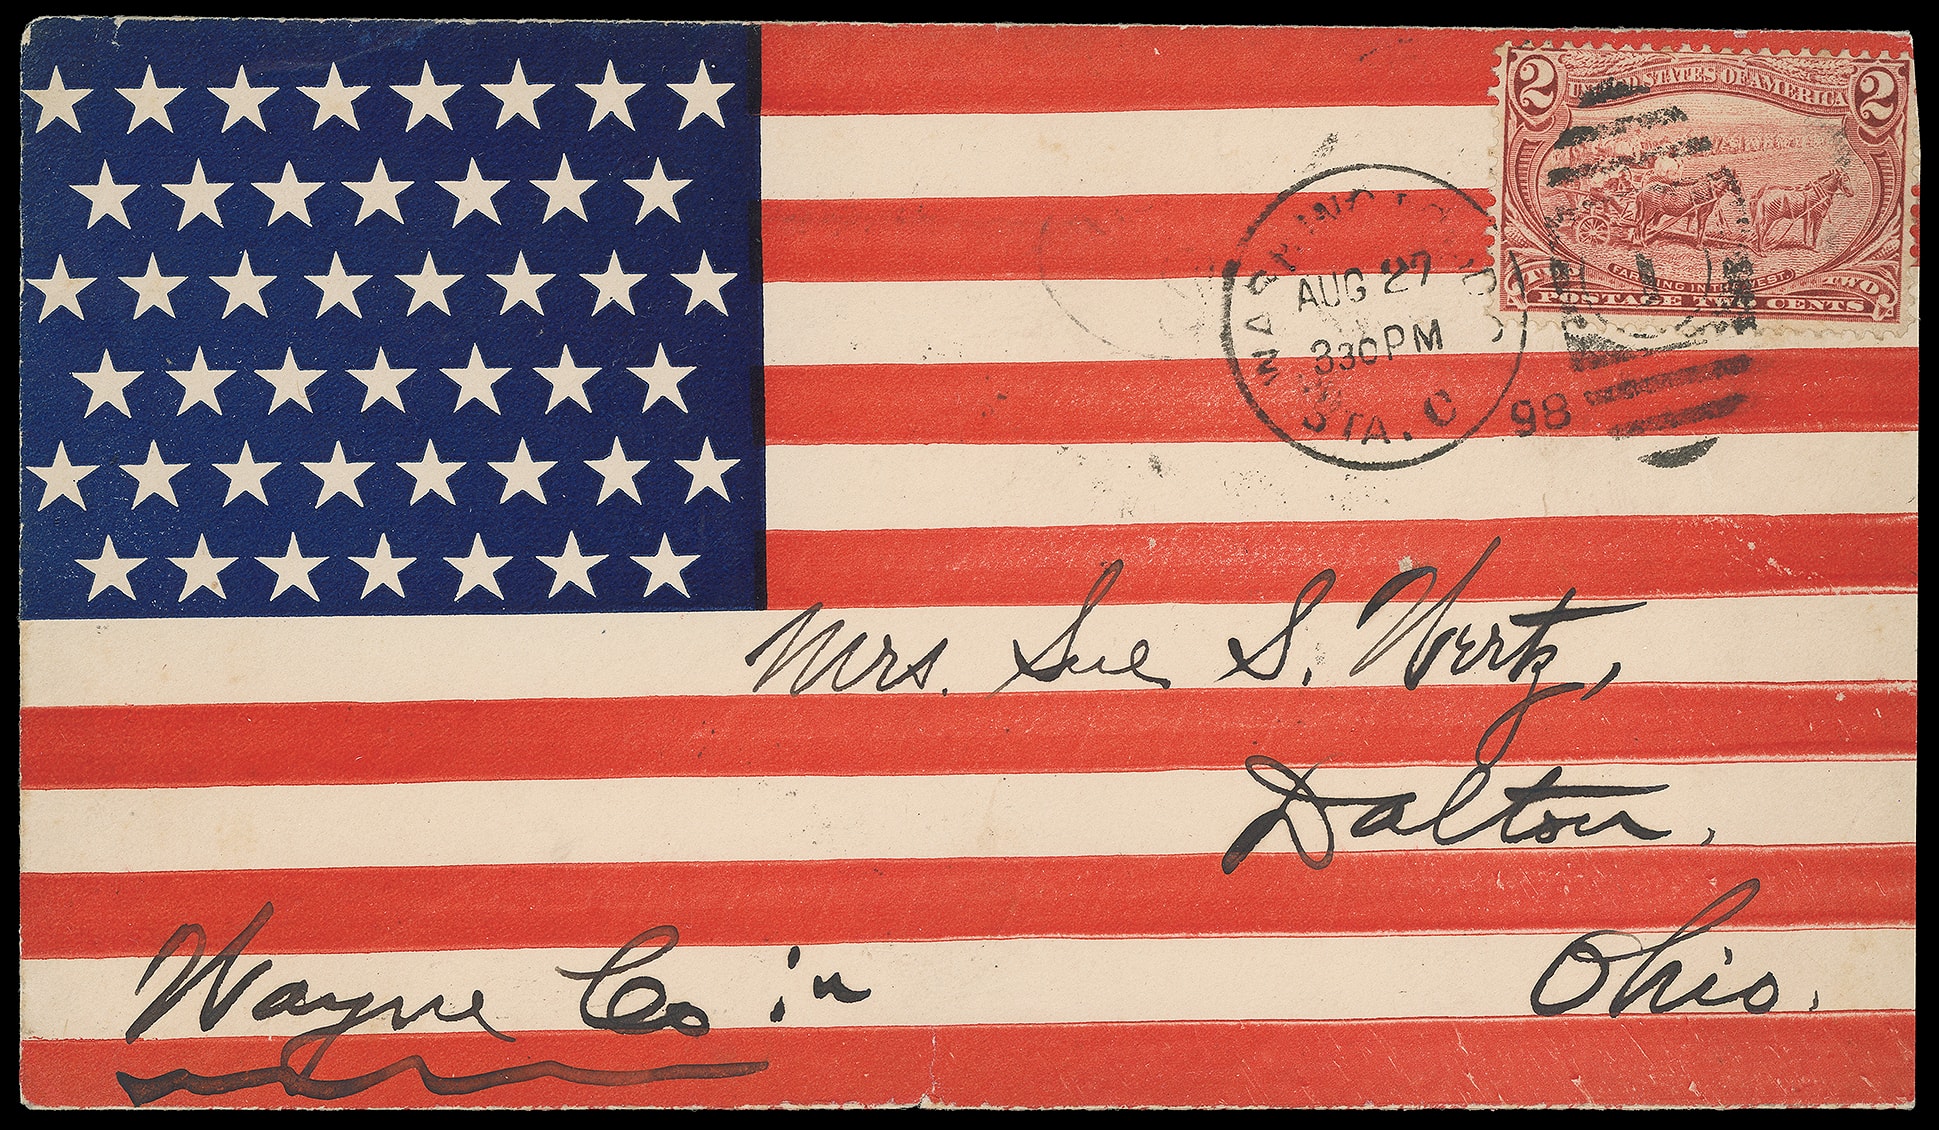 2 UNITED STATES OF AMERICA 2
FARMING IN THE WEST.
TWO TWO
POSTAGE TWO CENTS
WASHINGTON, D.C.
AUG 27
330PM
98
STA. C
Mrs. Sue S. Wertz,
Dalton,
Ohio.
Wayne Co :"